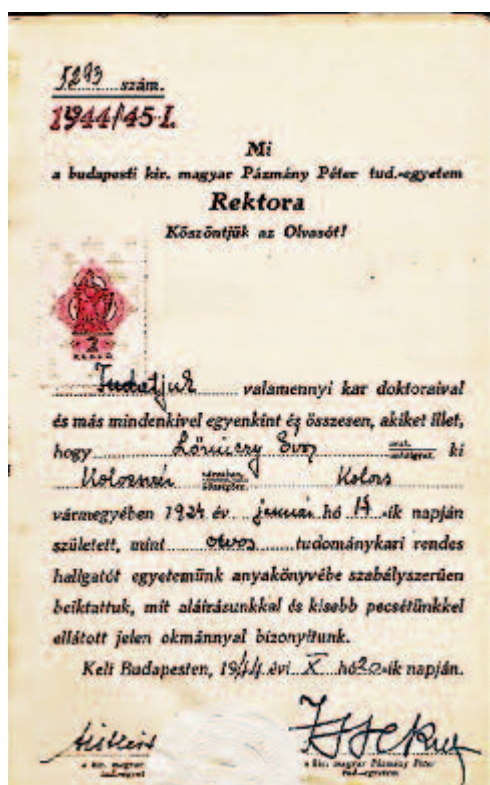 5293 szám.
1944/45-I.
Mi
a budapesti kir. magyar Pázmány Péter tud.-egyetem
Rektora
Köszöntjük az Olvasót!
2
Tudatjuk valamennyi kar doktoraival
és más mindenkivel egyenkint és összesen, akiket illet,
hogy Lőrinczy ki
Kolozsvár városban, községben, Kolozs
vármegyében 1924 év január hó 14-ik napján
született, mint orvos tudománykari rendes
hallgatót egyetemünk anyakönyvébe szabályszerűen
beiktattuk, mit aláírásunkkal és kisebb pecsétünkkel
ellátott jelen okmánnyal bizonyítunk.
Kelt Budapesten, 1944 évi X hó 20-ik napján.
a kir. magyar a kir. magyar Pázmány Péter
tud.-egyetem